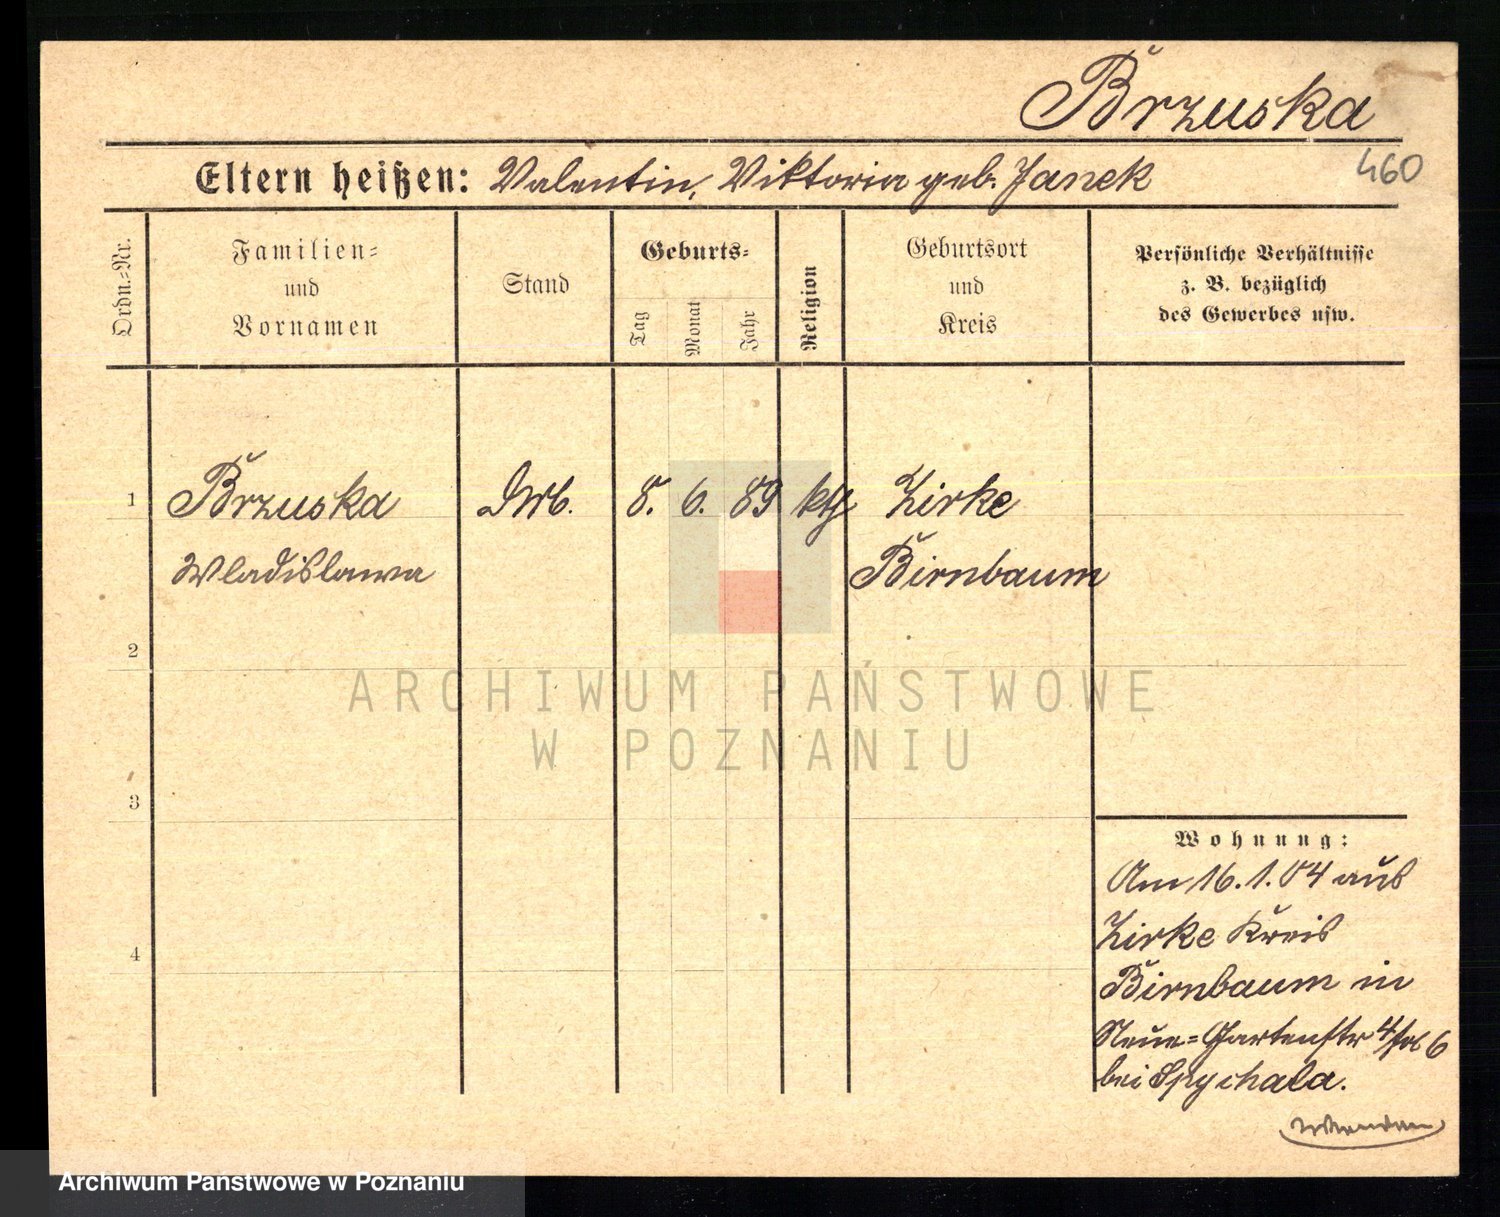 Brzuska
Eltern heißen: Valentin, Viktoria geb. Janek
460
Ordn.-Nr.
Familien-
und
Vornamen
Stand
Geburts-
Tag
Monat
Jahr
Religion
Geburtsort
und
Kreis
Persönliche Verhältnisse
z. B. bezüglich
des Gewerbes usw.
1
Brzuska
8. 6. 89 kth
Zirke
Wladislawa
Birnbaum
2
ARCHIWUM PAŃSTWOWE
W POZNANIU
3
Wohnung:
Am 16.1.04 aus
Zirke Kreis
4
Birnbaum in
Neue-Gartenstr 4/
bei Spychala.
Wenden
Archiwum Państwowe w Poznaniu